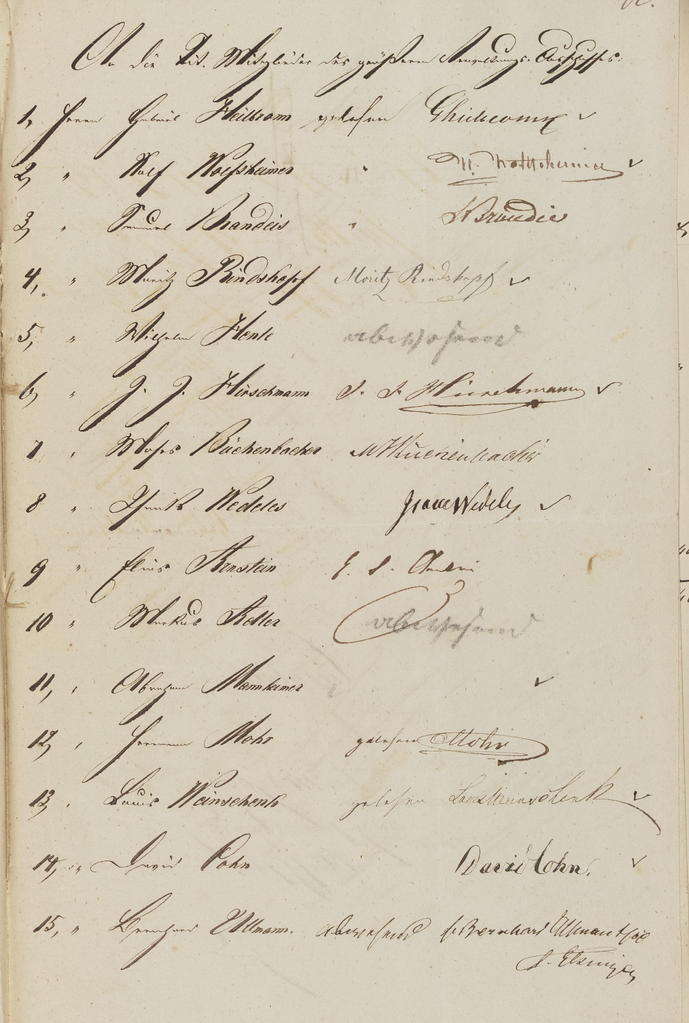 An die Tit. Mitglieder des größern Verwaltungs-Ausschusses.
1, Herrn Gabriel Heilbronn gelesen GHeilbronn ✓
2, " Wolf Wolfsheimer " W. Wolfsheimer ✓
3, " Samuel Brandeis " SBrandeis
4, " Moritz Rindskopf Moritz Rindskopf ✓
5, " Wilhelm Henle abwesend
6, " J. J. Hirschmann J. J. Hirschmann ✓
7 " Moses Büchenbacher MBüchenbacher
8 " Wedeles Wedeles ✓
9 " Elias Arnstein E. S.
10 " Markus Adler abwesend
11, " Abraham Mannheimer ✓
12, " Herman Mohr gelesen Mohr
13, " Louis Weinschenk gelesen Louis Weinschenk ✓
14, " David Cohn David Cohn. ✓
15, " Bernhard Ullmann. abwesend f. Bernhard Ullmann